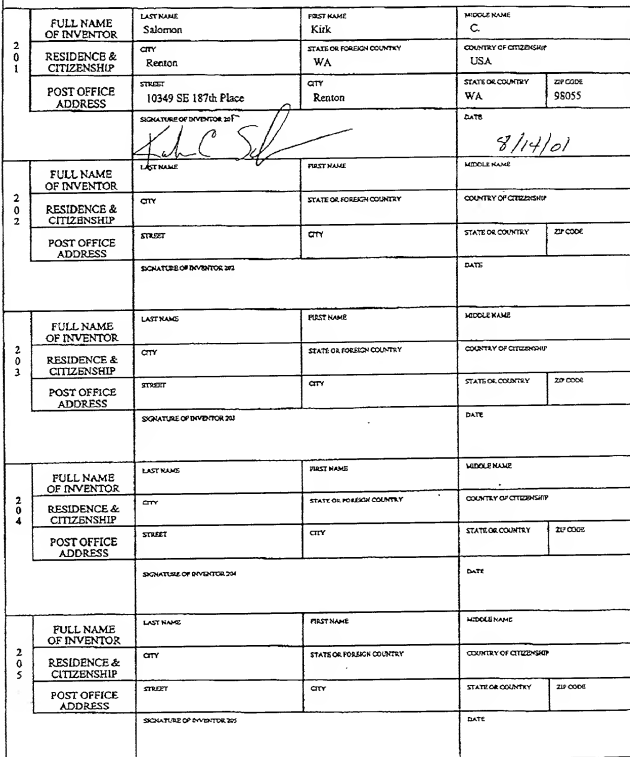 FULL NAME OF INVENTOR LAST NAME FIRST NAME MIDDLE NAME
Salomon Kirk C.
201 RESIDENCE & CITIZENSHIP CITY STATE OR FOREIGN COUNTRY COUNTRY OF CITIZENSHIP
Renton WA USA
POST OFFICE ADDRESS STREET CITY STATE OR COUNTRY ZIP CODE
10349 SE 187th Place Renton WA 98055
SIGNATURE OF INVENTOR 201 DATE
8/14/01
FULL NAME OF INVENTOR LAST NAME FIRST NAME MIDDLE NAME
202 RESIDENCE & CITIZENSHIP CITY STATE OR FOREIGN COUNTRY COUNTRY OF CITIZENSHIP
POST OFFICE ADDRESS STREET CITY STATE OR COUNTRY ZIP CODE
SIGNATURE OF INVENTOR 202 DATE
FULL NAME OF INVENTOR LAST NAME FIRST NAME MIDDLE NAME
203 RESIDENCE & CITIZENSHIP CITY STATE OR FOREIGN COUNTRY COUNTRY OF CITIZENSHIP
POST OFFICE ADDRESS STREET CITY STATE OR COUNTRY ZIP CODE
SIGNATURE OF INVENTOR 203 DATE
FULL NAME OF INVENTOR LAST NAME FIRST NAME MIDDLE NAME
204 RESIDENCE & CITIZENSHIP CITY STATE OR FOREIGN COUNTRY COUNTRY OF CITIZENSHIP
POST OFFICE ADDRESS STREET CITY STATE OR COUNTRY ZIP CODE
SIGNATURE OF INVENTOR 204 DATE
FULL NAME OF INVENTOR LAST NAME FIRST NAME MIDDLE NAME
205 RESIDENCE & CITIZENSHIP CITY STATE OR FOREIGN COUNTRY COUNTRY OF CITIZENSHIP
POST OFFICE ADDRESS STREET CITY STATE OR COUNTRY ZIP CODE
SIGNATURE OF INVENTOR 205 DATE